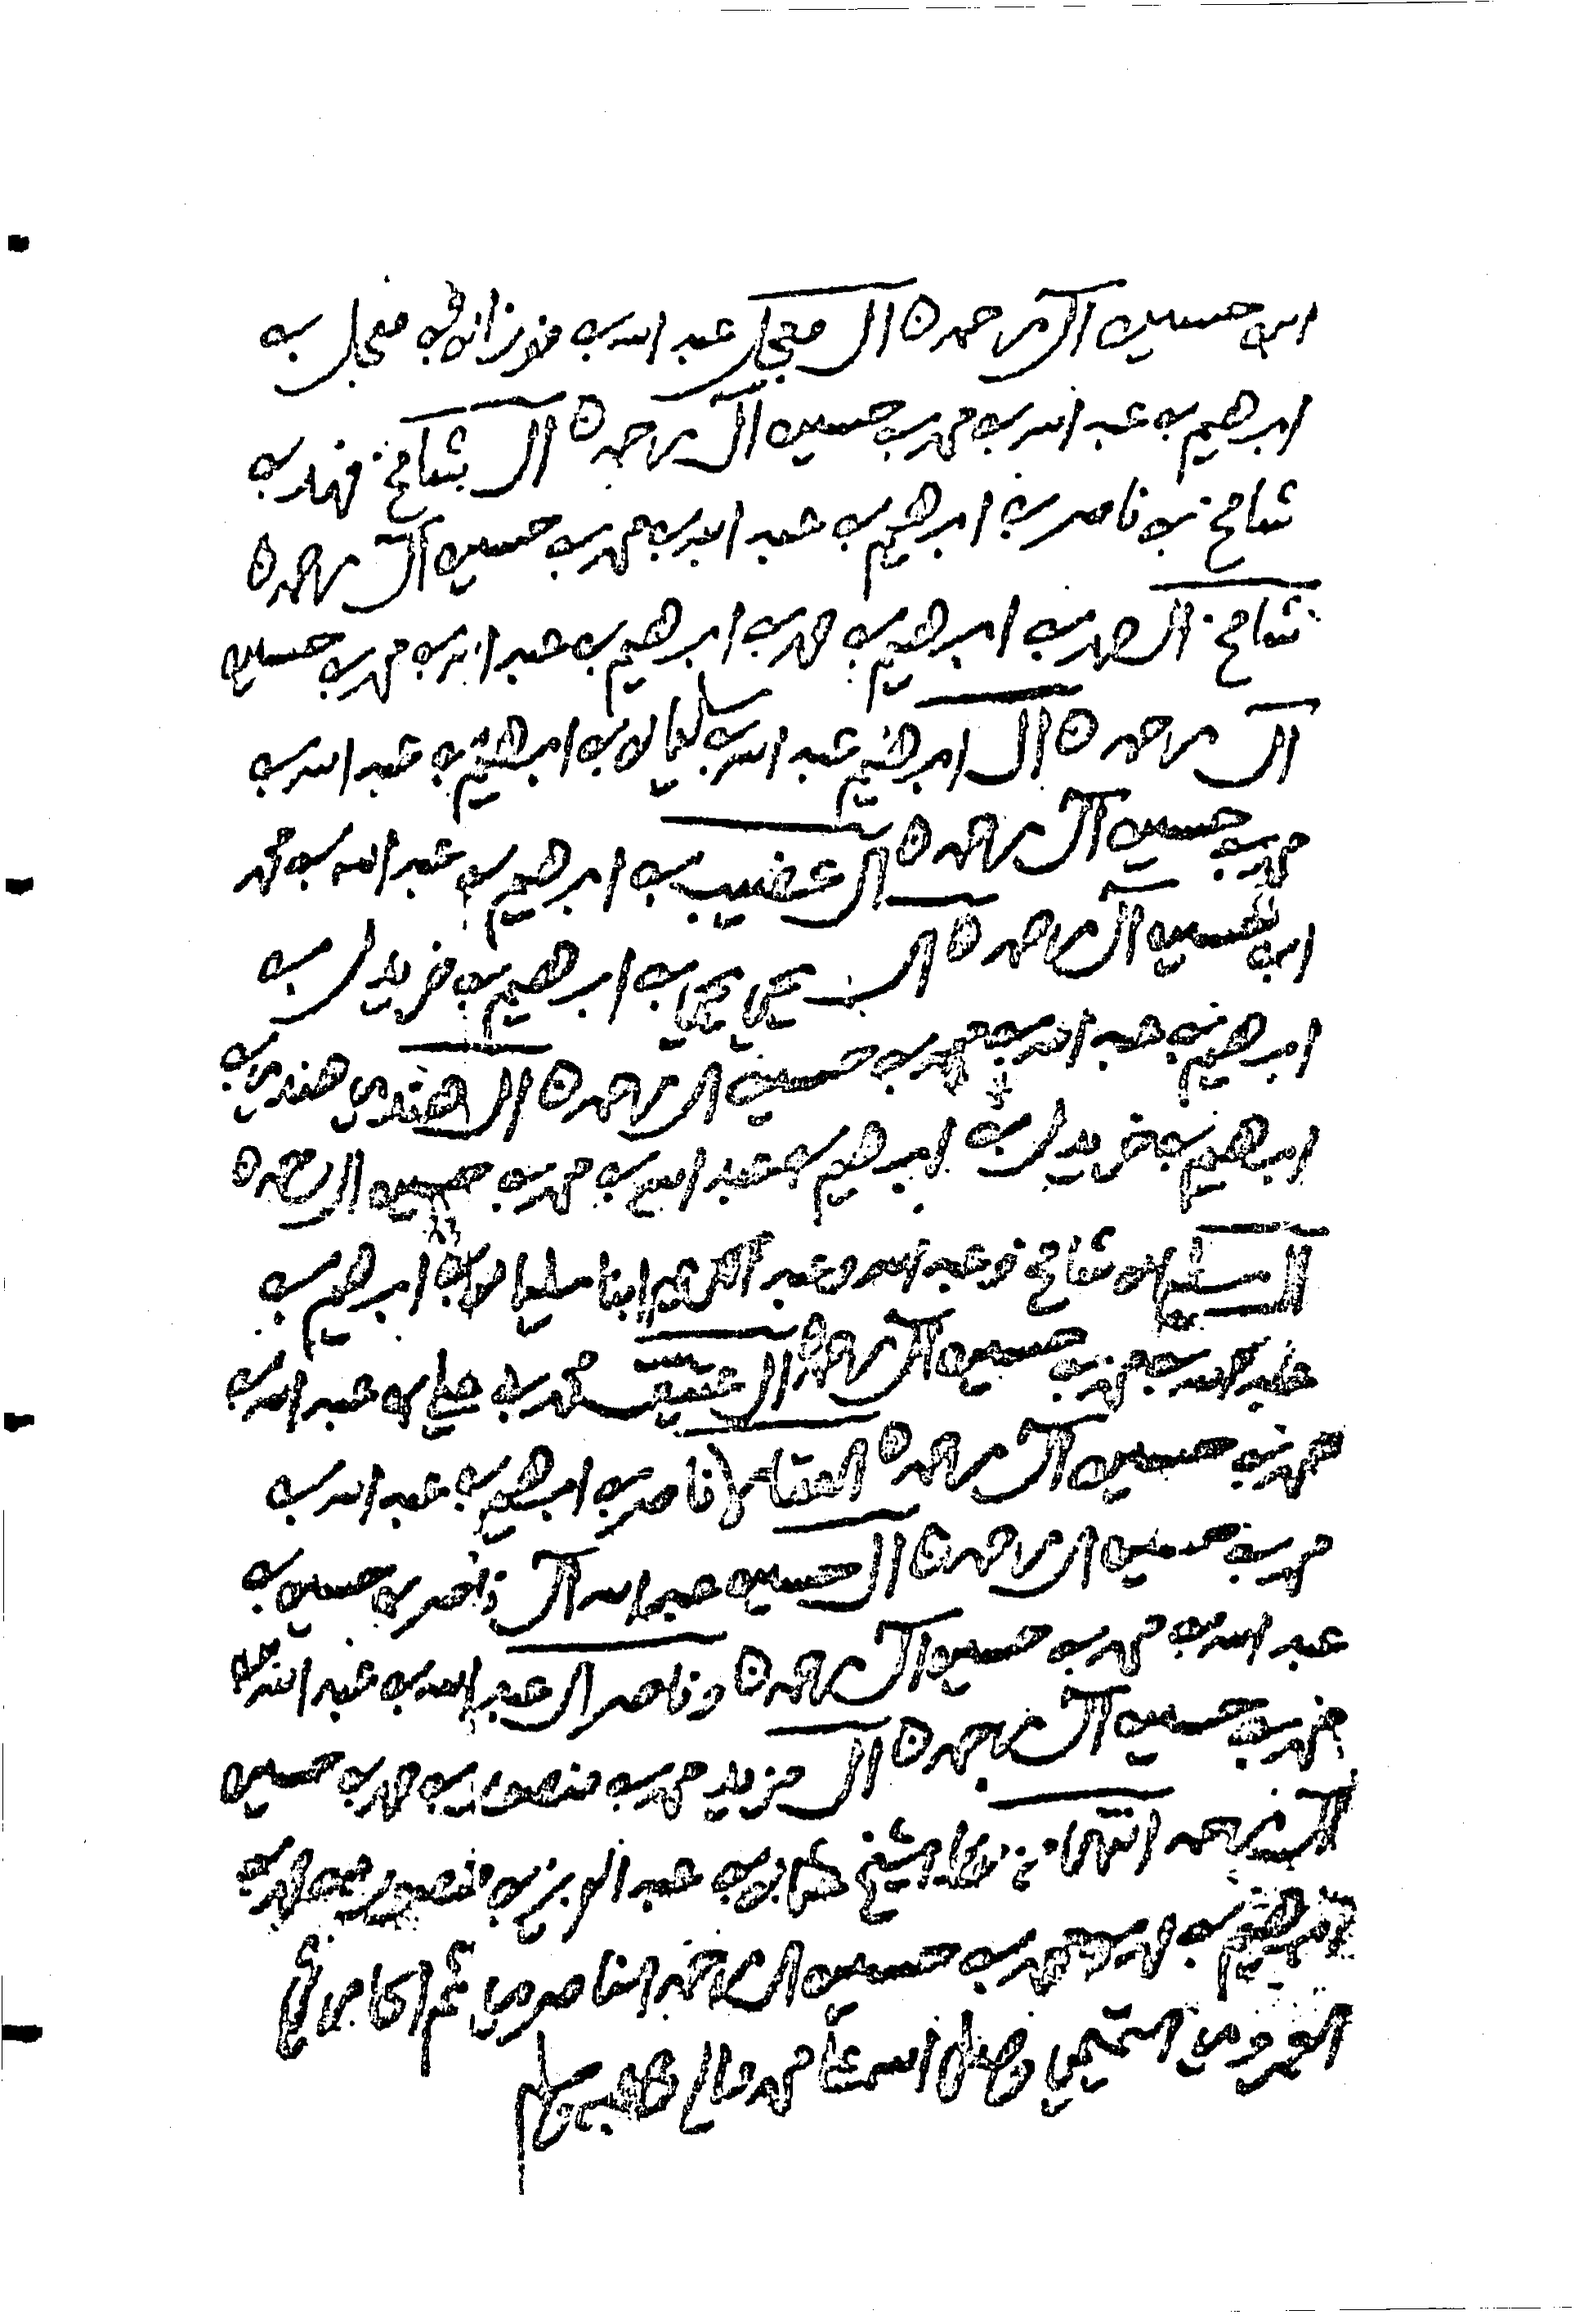 ابن حسين آل رحمه ال مجلي عبد الله بن فوزان بن مجلي بن
ابرهيم بن عبد الله بن محمد بن حسين آل رحمه ال شايع فهد بن
شايع بن ناصر بن ابرهيم بن عبد الله بن محمد بن حسين آل رحمه
شايع الحمد بن ابرهيم بن محمد بن ابرهيم بن عبد الله بن محمد بن حسين
آل رحمه ال ابرهيم عبد الله بن سليمان بن ابرهيم بن عبد الله بن
محمد بن حسين آل رحمه ال عضيب بن ابرهيم بن عبد الله بن محمد
ابن حسين آل رحمه ال يحيا يحيا بن ابرهيم بن بن
ابرهيم بن عبد الله بن محمد بن حسين ال رحمه ال هندي هندي بن
ابرهيم بن بن ابرهيم بن عبد الله بن محمد بن حسين ال رحمه
ال سليمان شايع وعبد الله وعبد ابنا سليمان بن ابرهيم بن
عبد الله بن محمد بن حسين آل رحمه ال عتيق محمد بن علي بن عبد الله بن
محمد بن حسين آل رحمه ناصر بن ابرهيم بن عبد الله بن
محمد بن حسين ال رحمه ال حسين عبد الله آل ناصر بن حسين بن
عبد الله بن محمد بن حسين آل رحمه وناصر ال عبد الله بن عبد الله بن
محمد بن حسين آل رحمه ال مزيد محمد بن منصور بن محمد بن حسين
آل رحمه الشيخ عثمان بن عبد العزيز بن منصور بن محمد بن
ابرهيم بن محمد بن حسين ال رحمه الناصري
العمروي التميمي وصلى الله على محمد واله وصحبه وسلم